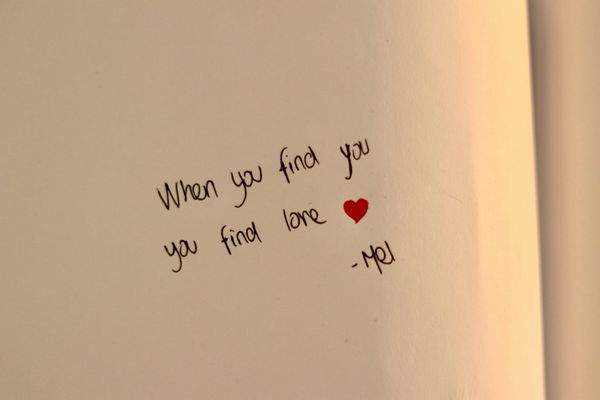 When you find you
you find love ❤
-Mel